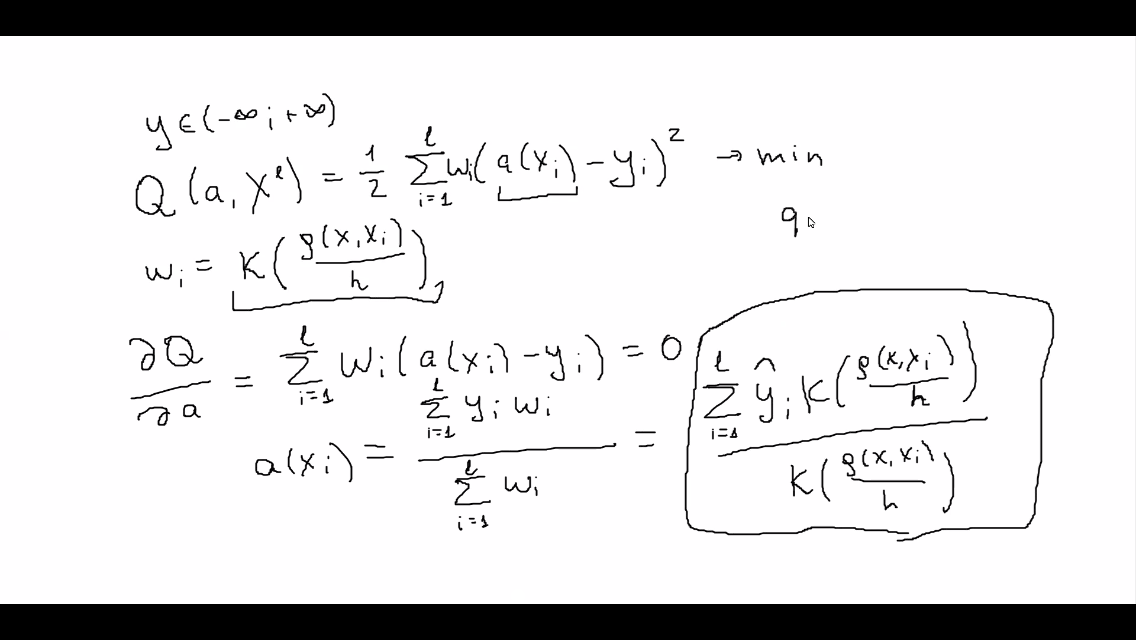 y ∈ (-∞; +∞)
Q(a, X^l) = 1/2 ∑_{i=1}^{l} w_i (a(x_i) - y_i)^2 → min
q
w_i = K(ρ(x, x_i)/h)
∂Q/∂a = ∑_{i=1}^{l} w_i (a(x_i) - y_i) = 0
a(x_i) = ∑_{i=1}^{l} y_i w_i / ∑_{i=1}^{l} w_i = ∑_{i=1}^{l} ŷ_i K(ρ(x, x_i)/h) / K(ρ(x, x_i)/h)